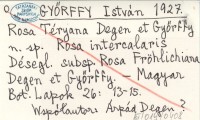 GYÖRFFY István 1927.
Rosa Téryana Degen et Györffy
n. sp. Rosa intercalaris
Déségl. subsp. Rosa Fröhlichiana
Degen et Györffy. - Magyar
Bot. Lapok 26: 13-15.
Árpád Degen?